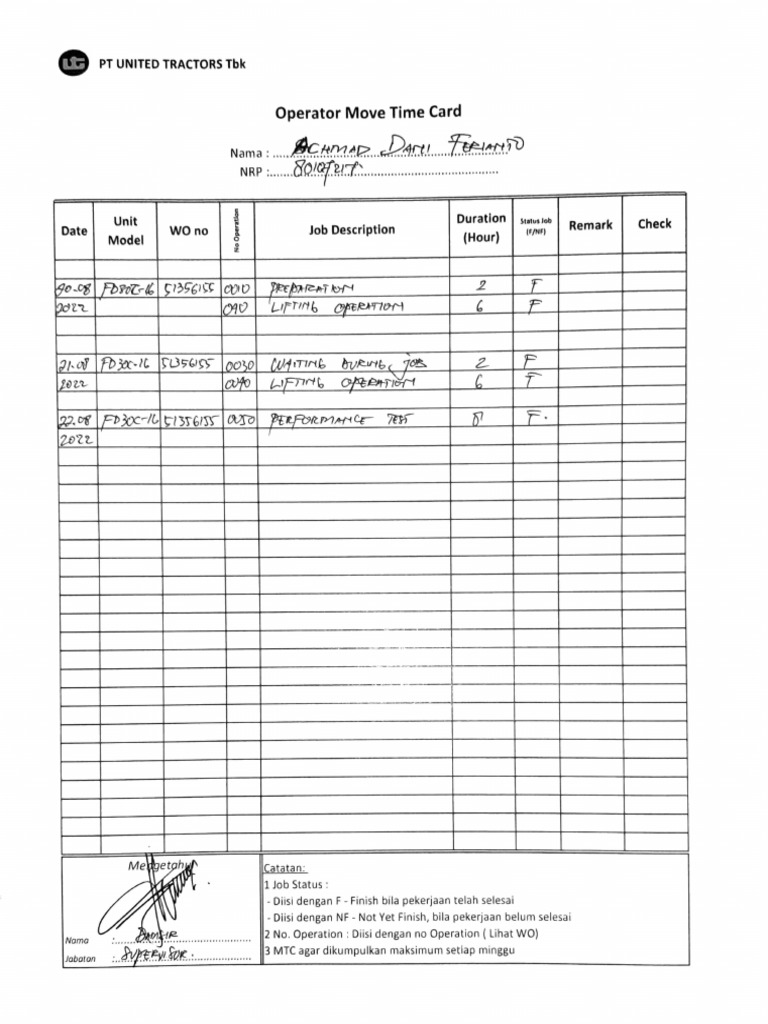 UT PT UNITED TRACTORS Tbk
Operator Move Time Card
Nama : ACHMAD DANI FERIANTO
NRP :
Date Unit Model WO no No Operation Job Description Duration (Hour) Status Job (F/NF) Remark Check
51356155 0010 PREPARATION 2 F
2022 LIFTING OPERATION 6 F
21.08 FD30C-16 51356155 0030 WAITING DURING JOB 2 F
2022 0040 LIFTING OPERATION 6 F
22.08 FD30C-16 51356155 0050 PERFORMANCE TEST 8 F.
2022
Mengetahui
Catatan:
1 Job Status :
- Diisi dengan F - Finish bila pekerjaan telah selesai
- Diisi dengan NF - Not Yet Finish, bila pekerjaan belum selesai
Nama :
2 No. Operation : Diisi dengan no Operation ( Lihat WO)
Jabatan : SUPERVISOR.
3 MTC agar dikumpulkan maksimum setiap minggu